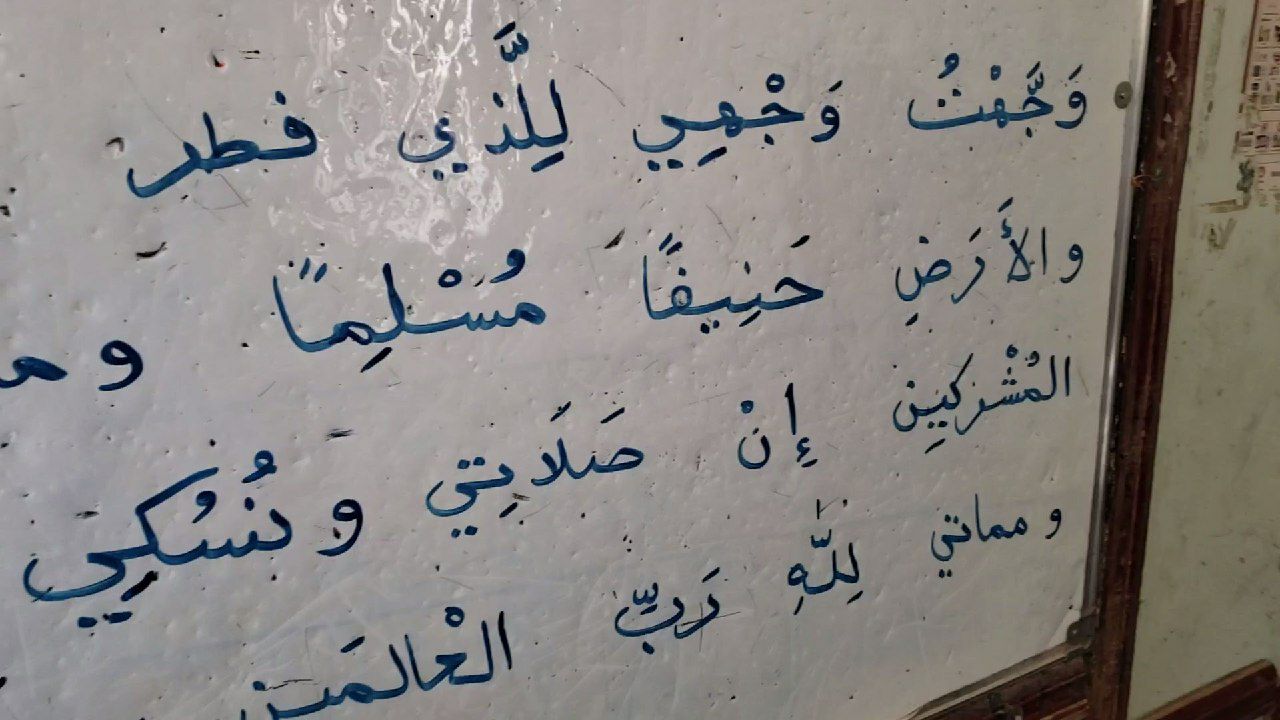 وَجَّهْتُ وَجْهِيِ لِلَّذي فطر
والأَرَضِ حَنِيفًا مُسْلِمًا وم
المُشْرِكِين إِنْ صَلَاتِي ونُسُكِي
ومماتي لِلَّهِ رَبِّ الْعالمَين